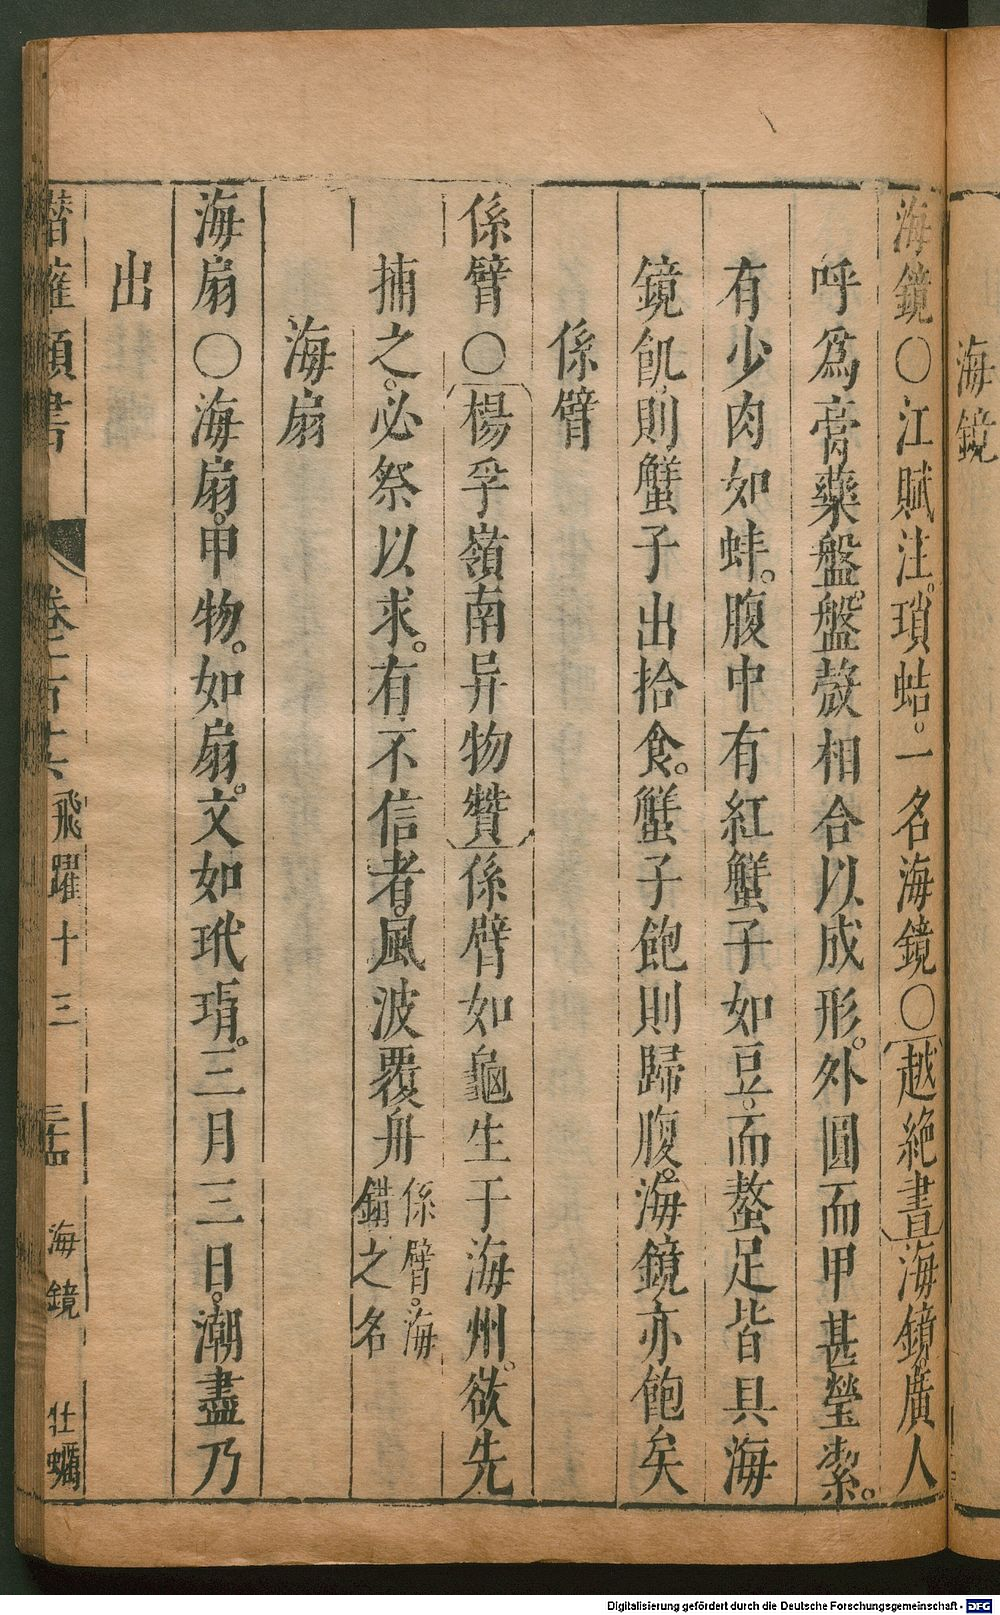 海鏡
海鏡○江賦注。瑣蛣。一名海鏡○越絶書海鏡。廣人
呼爲膏藥盤。盤殼相合以成形。外圓而甲甚瑩潔。
有少肉如蚌。腹中有紅蟹子如豆。而螯足皆具海
鏡飢則蟹子出拾食。蟹子飽則歸腹。海鏡亦飽矣
係臂
係臂○楊孚嶺南异物贊係臂如龜生于海州。欲先
捕之。必祭以求。有不信者。風波覆舟 係臂。海
錯之名
海扇
海扇○海扇。甲物。如扇。文如玳瑁。三月三日。潮盡乃
出
潛確類書 飛躍十三 海鏡 牡蠣
Digitalisierung gefördert durch die Deutsche Forschungsgemeinschaft - DFG